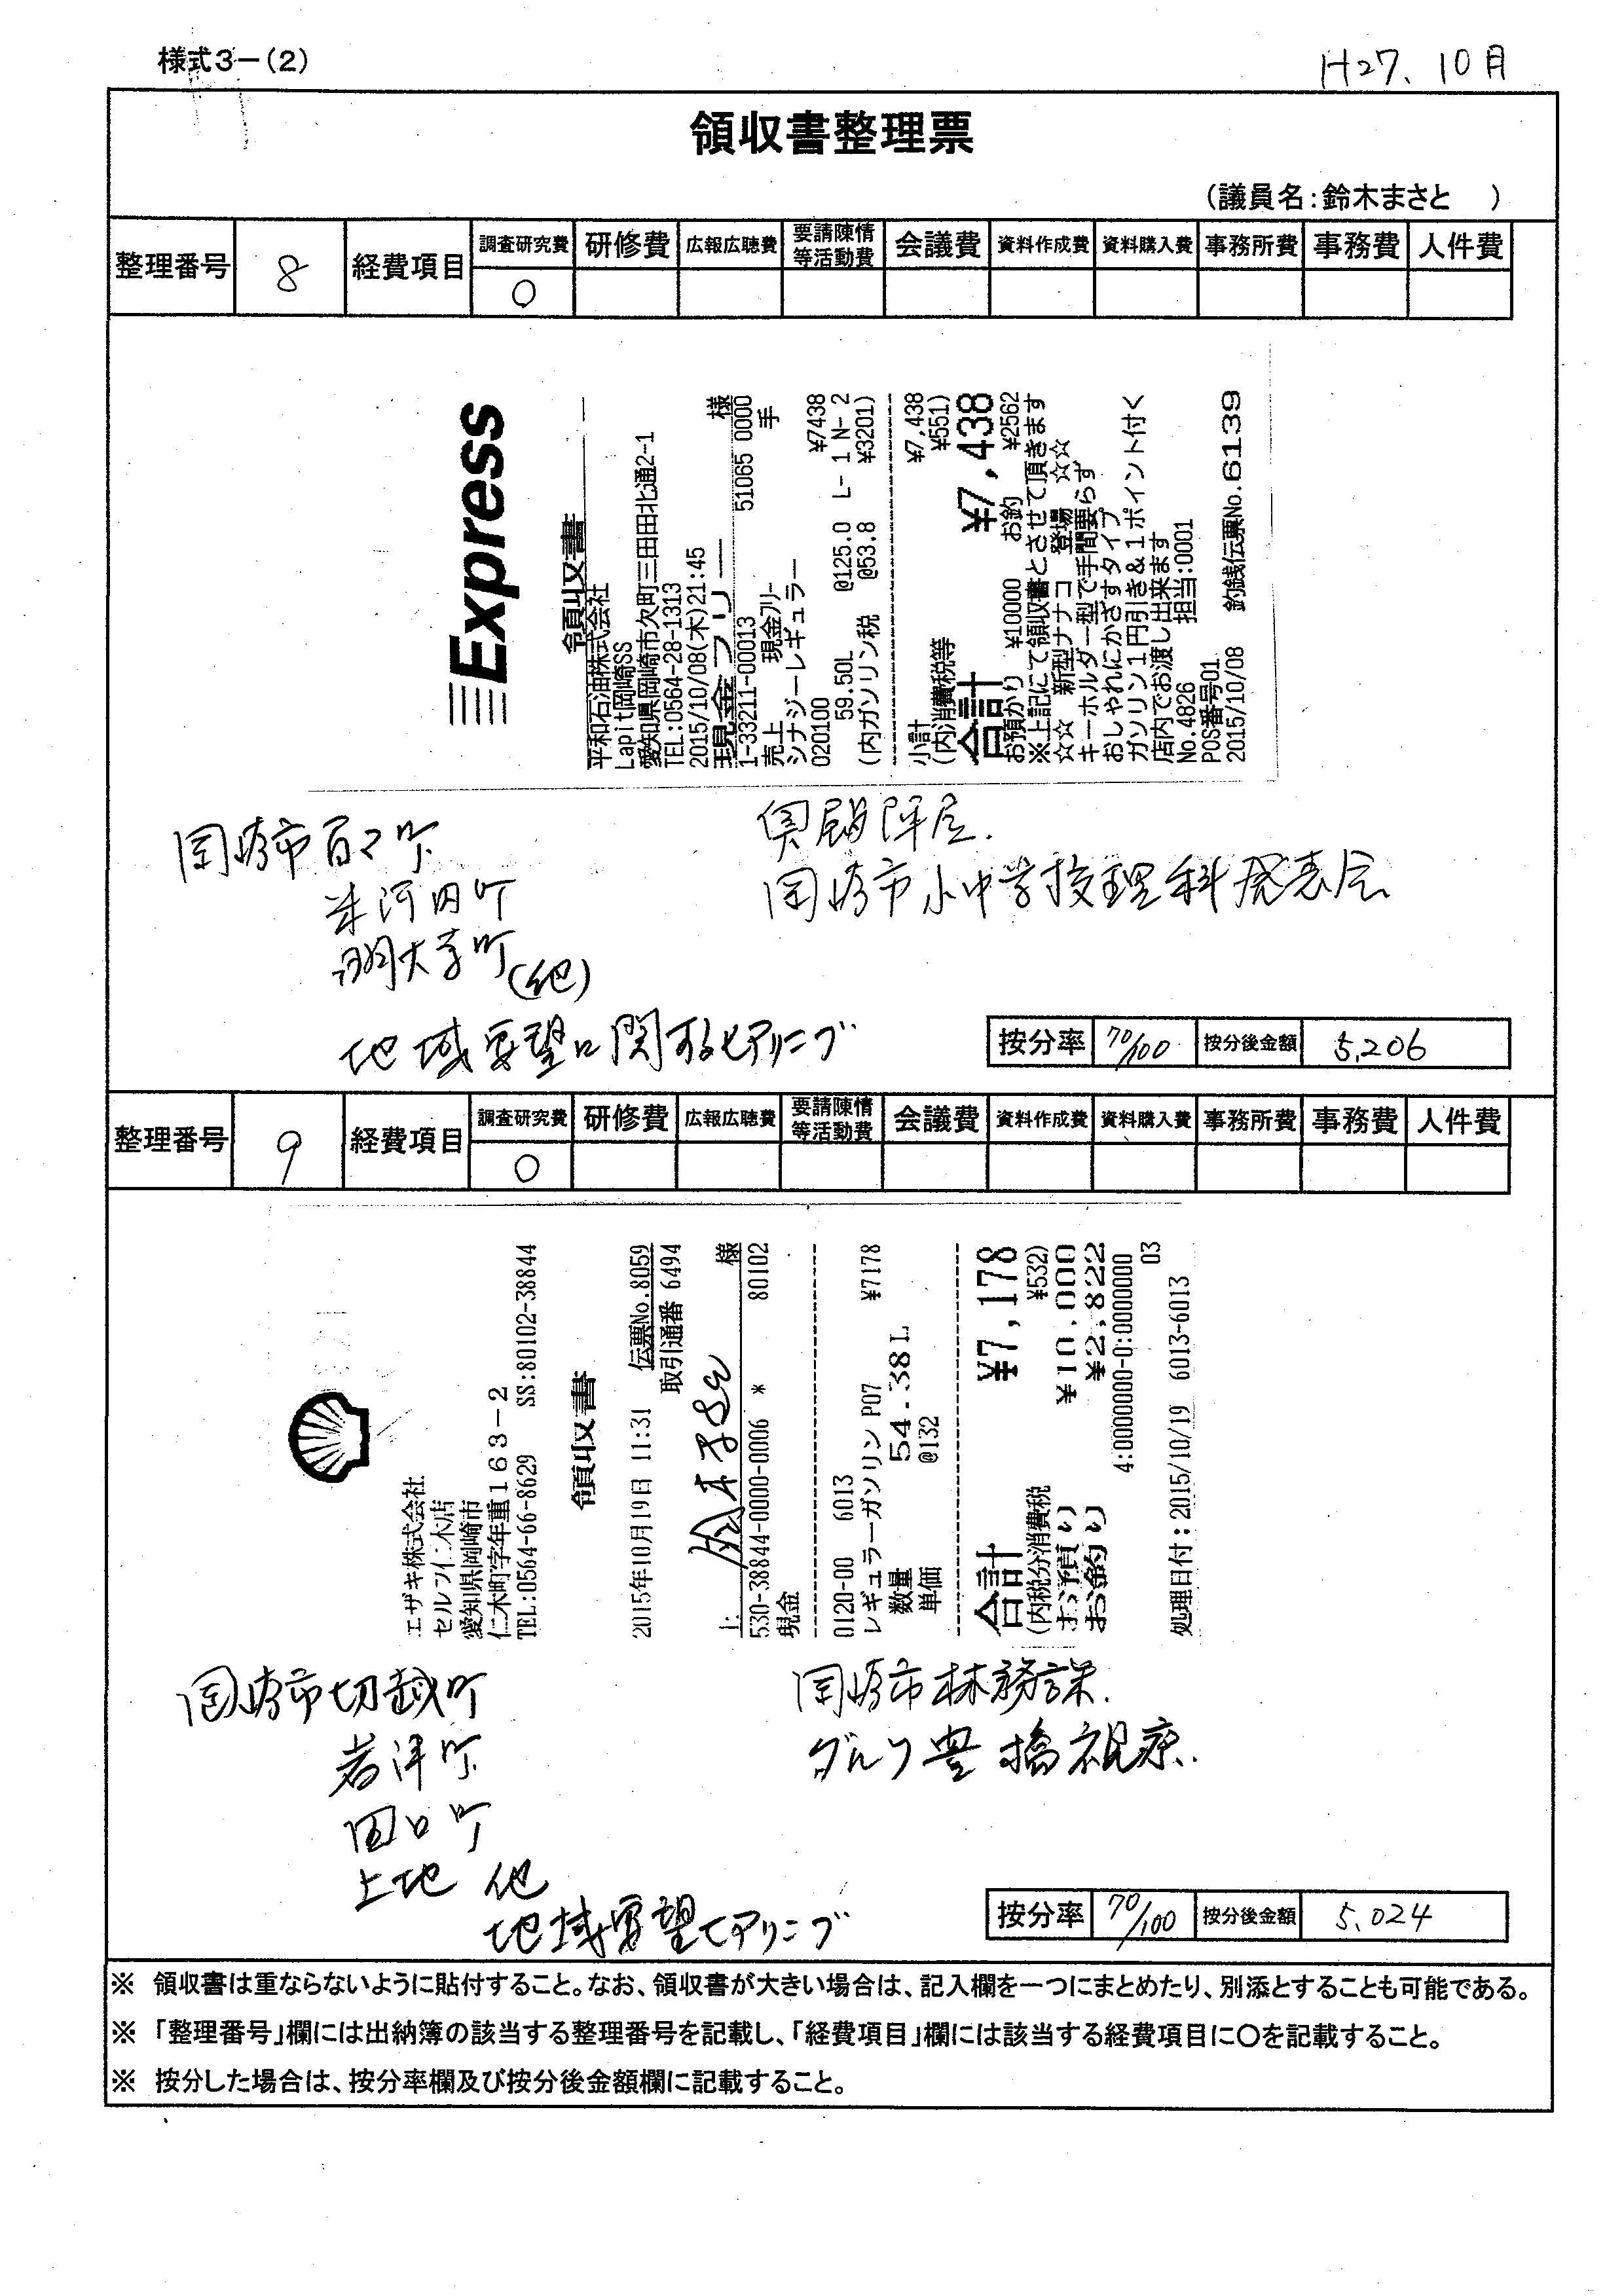 様式3-(2)
H27.10月
領収書整理票
(議員名:鈴木まさと　)
整理番号 8 経費項目 調査研究費 研修費 広報広聴費 要請陳情等活動費 会議費 資料作成費 資料購入費 事務所費 事務費 人件費
○
Express
領収書
平和石油株式会社
Lapit岡崎SS
愛知県岡崎市欠町三田田北通2-1
TEL:0564-28-1313
2015/10/08(木)21:45
現金フリー 様
1-33211-00013 51065 0000
売上 現金フリー 手
シナジーレギュラー
020100 ¥7438
59.50L @125.0 L- 1 N- 2
(内ガソリン税 @53.8 ¥3201)
小計 ¥7,438
(内消費税等 ¥551)
合計 ¥7,438
お預かり ¥10000 お釣 ¥2562
※上記にて領収書とさせて頂きます
☆☆☆ 新型ナナコ 登場 ☆☆☆
キーホルダー型で手間要らず
おしゃれにかざすタイプ
ガソリン1円引き&1ポイント付く
店内でお渡し出来ます
No.4826 担当:0001
POS番号01
2015/10/08 釣銭伝票No.6139
岡崎市百々町
米河内町
明大寺町(他)
地域要望に関するヒアリング
奥殿陣屋.
岡崎市小中学校理科発表会
按分率 70/100 按分後金額 5,206
整理番号 9 経費項目 調査研究費 研修費 広報広聴費 要請陳情等活動費 会議費 資料作成費 資料購入費 事務所費 事務費 人件費
○
エザキ株式会社
セルフ仁木店
愛知県岡崎市
仁木町字年重163-2
TEL:0564-66-8629 SS:80102-38844
領収書
2015年10月19日 11:31 伝票No.8059
取引通番 6494
上 様
530-38844-0000-0006 * 80102
現金
0120-00 6013
レギュラーガソリン P07 ¥7178
数量 54.38L
単価 @132
合計 ¥7,178
(内税分消費税 ¥532)
お預り ¥10,000
お釣り ¥2,822
4:0000000-0:0000000
03
処理日付:2015/10/19 6013-6013
岡崎市切越町
岩津町
田口町
上地 他
地域要望ヒアリング
岡崎市林務課.
グルツ豊橋視察.
按分率 70/100 按分後金額 5,024
※ 領収書は重ならないように貼付すること。なお、領収書が大きい場合は、記入欄を一つにまとめたり、別添とすることも可能である。
※ 「整理番号」欄には出納簿の該当する整理番号を記載し、「経費項目」欄には該当する経費項目に○を記載すること。
※ 按分した場合は、按分率欄及び按分後金額欄に記載すること。